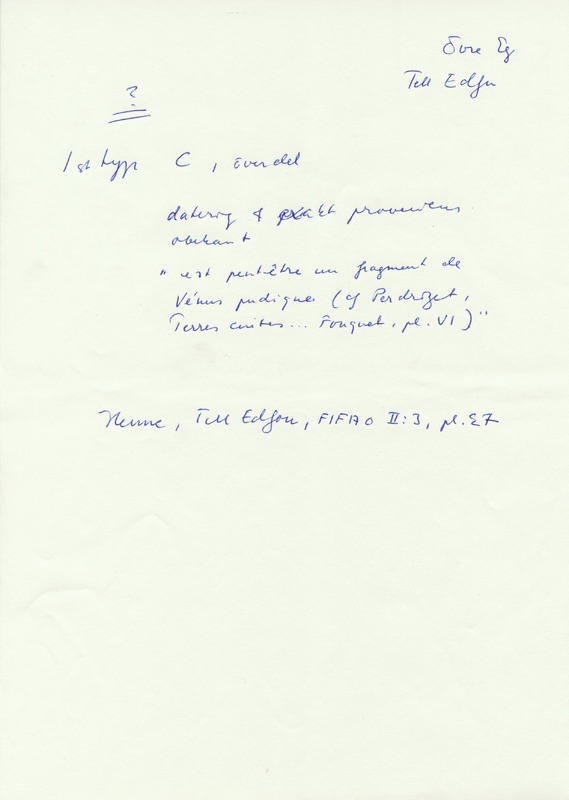 Övre Eg
Tell Edfu
?
1 st typ C, överdel
datering & exakt proveniens
obekant
" est peut-être un fragment de
Vénus pudique (cf Perdrizet,
Terres cuites... Fouquet, pl. VI)"
Henne, Tell Edfou, FIFAO II:3, pl.